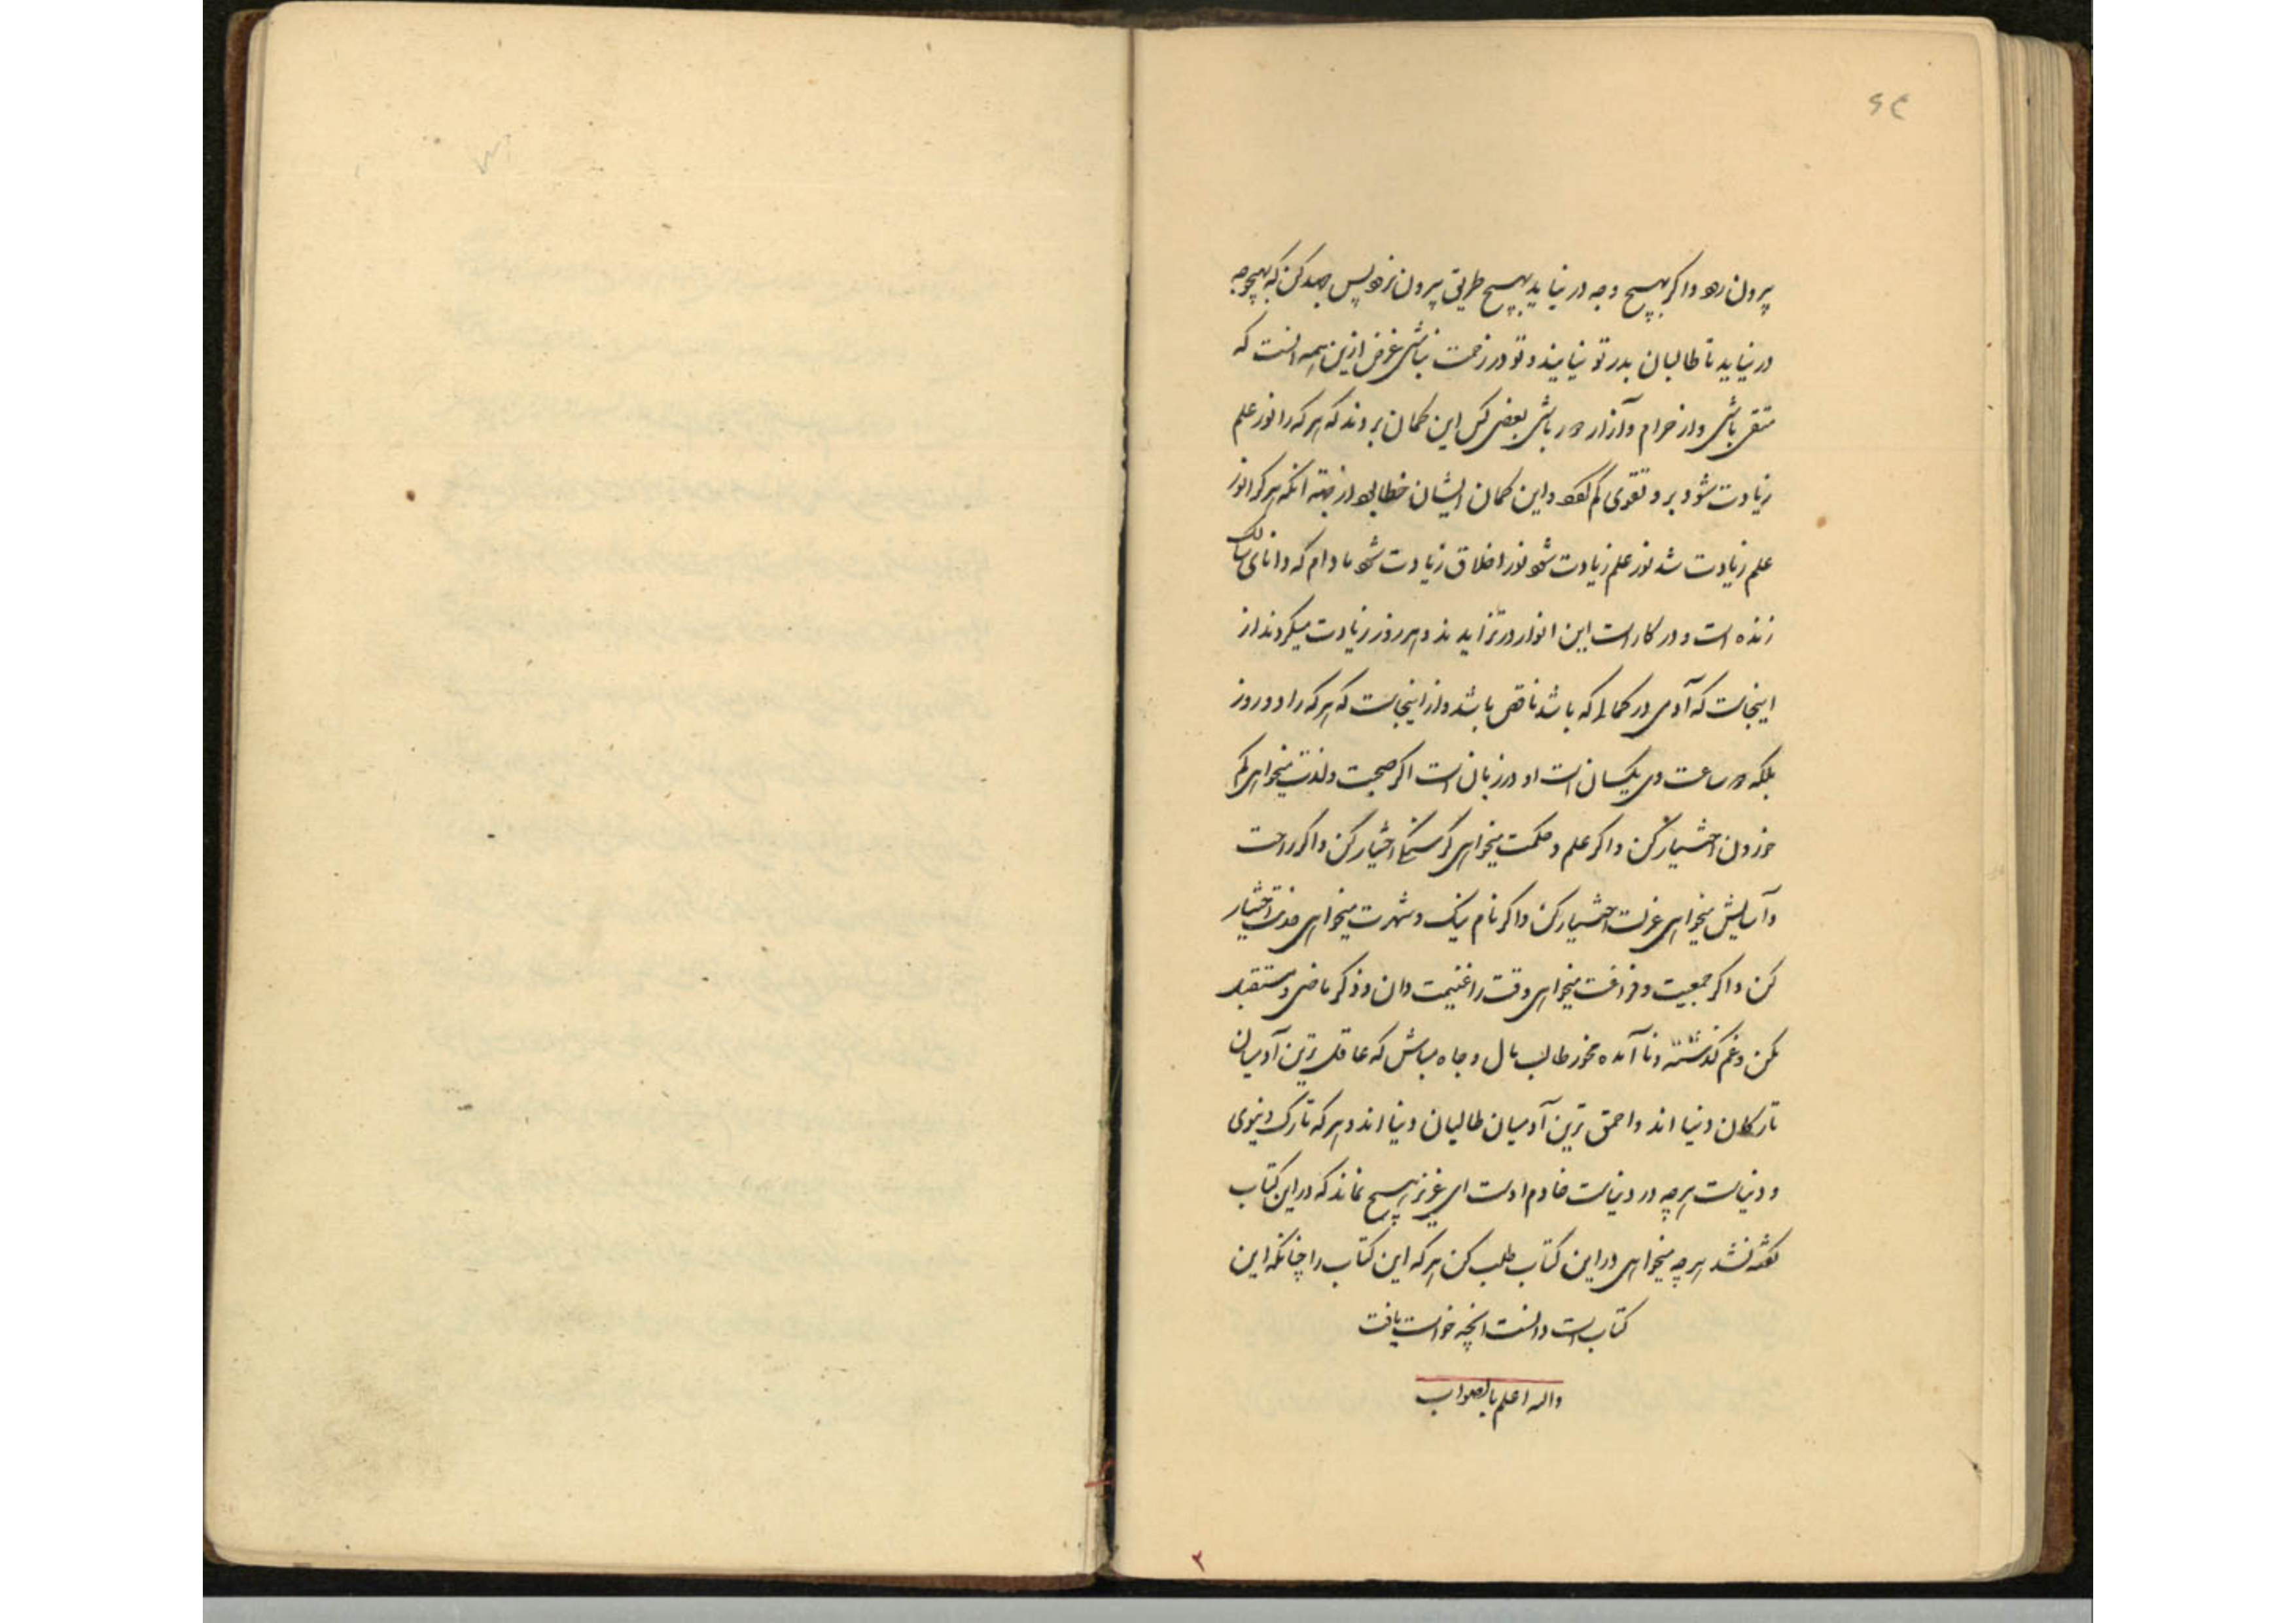 ۶۴
بیرون رود و اگر بهیچ وجه در نیاید بهیچ طریق بیرون نرود پس جهد کن که بهیچوجه
در نیاید تا طالبان بدر تو نیایند و تو در زحمت نباشی غرض ازین همه آنست که
متقی باشی و از حرام و آزار دور باشی بعضی کس این کمان بروند که هر که را نور علم
زیادت شود برو تقوی کم شود و این کمان ایشان خطا بود از جهة آنکه هر کرا نور
علم زیادت شد نور علم زیادت شود نور اخلاق زیادت شود مادام که دانای سالک
زنده است و در کار است این انوار در تزاید ند و هر روز زیادت میکردند از
اینجاست که آدمی در کمالی که باشد ناقص باشد و از اینجاست که هر که را دو روز
بلکه دو ساعت وی یکسان است او در زیان است اگر صحبت و لذت میخواهی کم
خوردن اختیار کن و اکر علم و حکمت میخواهی گرسنگی اختیار کن و اکر راحت
و آسایش میخواهی عزلت اختیار کن و اکر نام نیک و شهرت میخواهی خدمت اختیار
کن و اکر جمعیت و فراغت میخواهی وقت را غنیمت دان و ذکر ماضی و مستقبل
مکن و غم گذشته و نا آمده مخور طالب مال و جاه مباش که عاقل ترین آدمیان
تارکان دنیا اند و احمق ترین آدمیان طالبان دنیا اند و هر که تارک دنیوی
و دنیاست هر چه در دنیاست خادم اوست ای عزیز هیچ نماند که در این کتاب
گفته نشد هر چه میخواهی در این کتاب طلب کن هر که این کتاب را چنانکه این
کتاب است دانست آنچه خواست یافت
والله اعلم بالصواب
۲